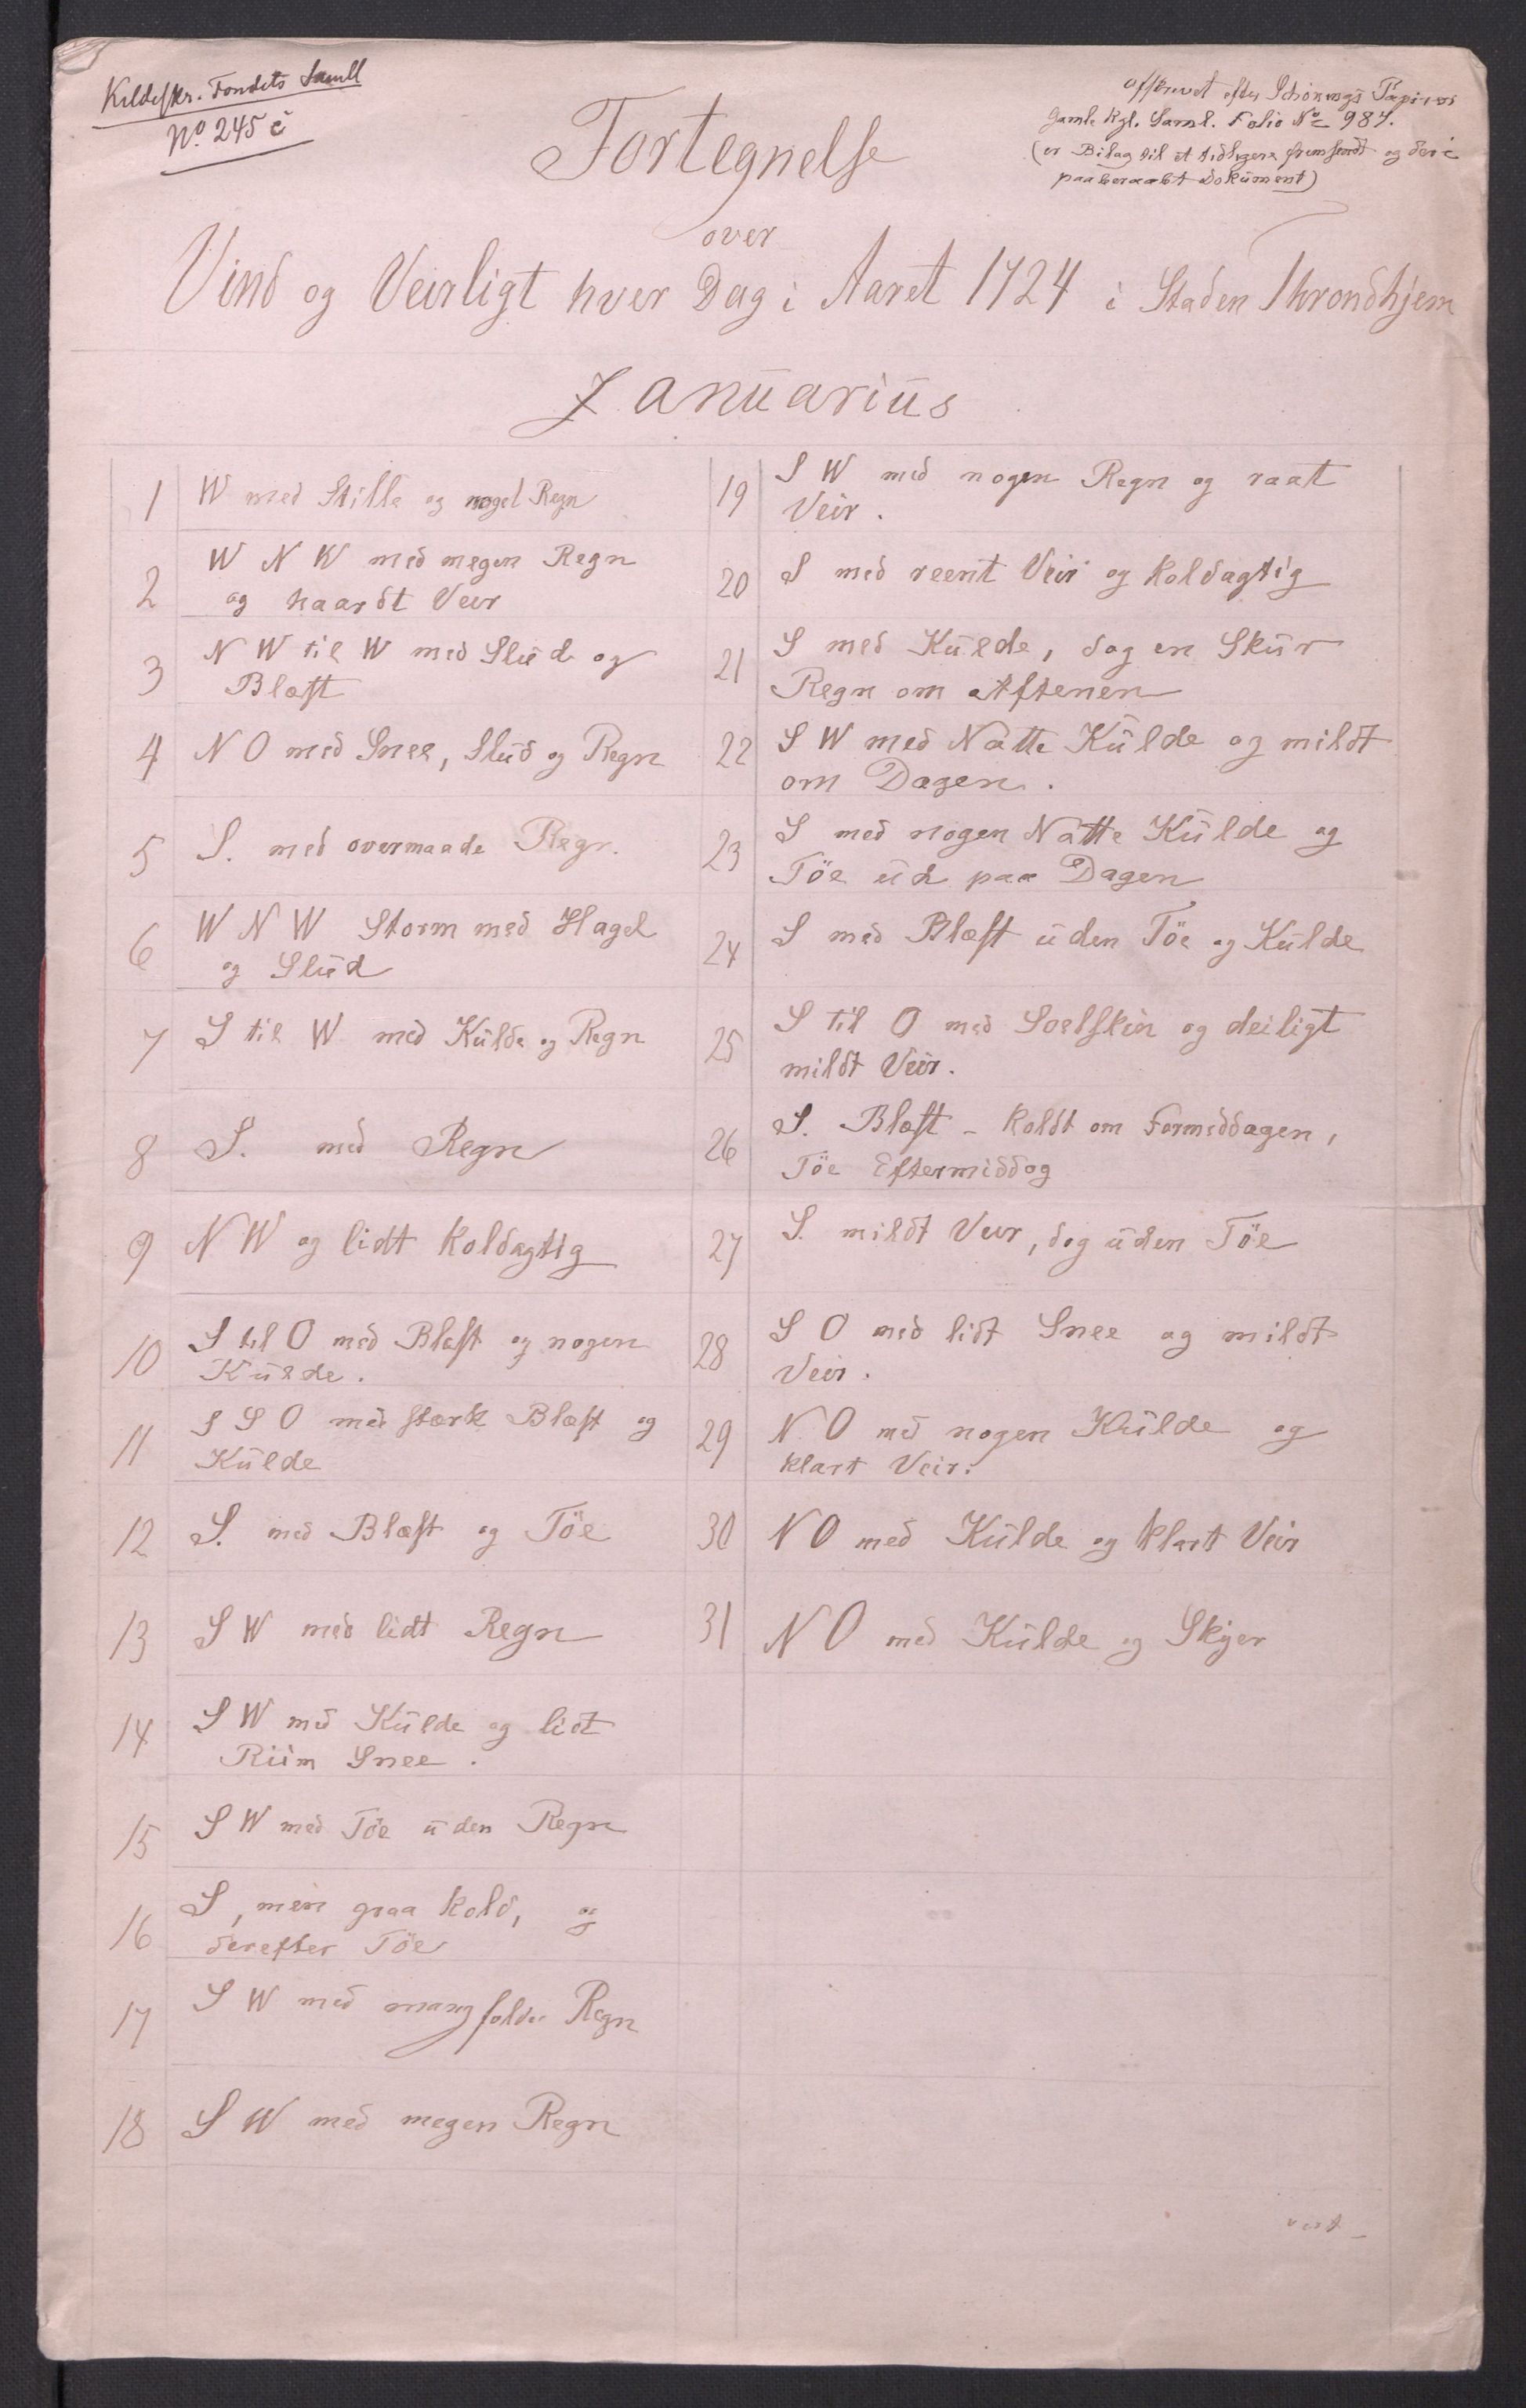 Kildeskr. Fondets Samll
No. 245 c
Afskrevet efter Schönings Papirer
Gamle Kgl. Saml. Folio No 987.
(er Bilag til et tidligere fremsendt og deri
paaberaabt Dokument)
Fortegnelse
over
Vind og Veirligt hver Dag i Aaret 1724 i Staden Throndhjem
Januarius
1 W med Stille og noget Regn
2 W N W med megen Regn
og haardt Veir
3 N W til W med Slud og
Blæst
4 N O med Snee, Slud og Regn
5 S. med overmaade Regn.
6 W N W Storm med Hagel
og Slud
7 S til W med Kulde og Regn
8 S. med Regn
9 N W og lidt Koldagtig
10 S til O med Blæst og nogen
Kulde.
11 S S O med stærk Blæst og
Kulde
12 S. med Blæst og Töe
13 S W med lidt Regn
14 S W med Kulde og lidt
Riim Snee.
15 S W med Töe uden Regn
16 S, men graa Kold, og
derefter Töe
17 S W med mangfoldig Regn
18 S W med megen Regn
19 S W med nogen Regn og raat
Veir.
20 S med reent Veir og Koldagtig
21 S med Kulde, dog en Skur
Regn om Aftenen
22 S W med Natte Kulde og mildt
om Dagen.
23 S med nogen Natte Kulde og
Töe ud paa Dagen
24 S med Blæst uden Töe og Kulde
25 S til O med Soelskin og deiligt
mildt Veir.
26 S. Blæst - Koldt om Formiddagen,
Töe Eftermiddag
27 S. mildt Veir, dog uden Töe
28 S O med lidt Snee og mildt
Veir.
29 N O med nogen Kulde og
klart Veir.
30 N O med Kulde og klart Veir
31 N O med Kulde og Skyer
vert